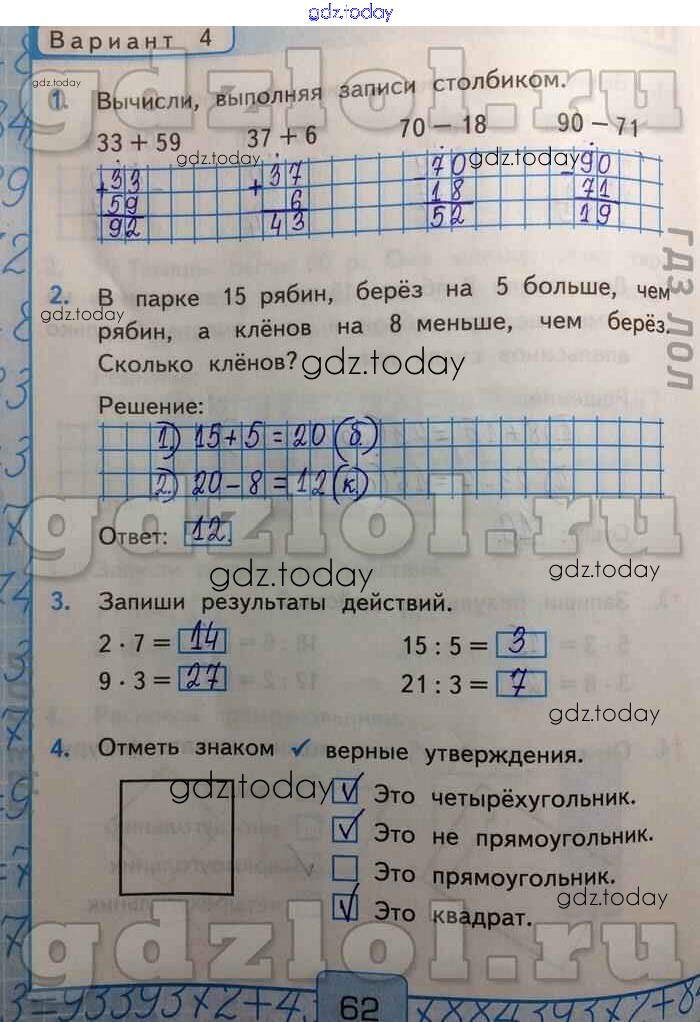 gdz.today
Вариант 4
gdzlol.ru
gdz.today
1. Вычисли, выполняя записи столбиком.
33 + 59 37 + 6 70 − 18 90 − 71
gdz.today gdz.today
+33 +37 −70 −90
59 6 18 71
92 43 52 19
гдз лол
2. В парке 15 рябин, берёз на 5 больше, чем
gdz.today
рябин, а клёнов на 8 меньше, чем берёз.
Сколько клёнов?
gdz.today
Решение:
1) 15 + 5 = 20 (б.)
2) 20 − 8 = 12 (к.)
gdzlol.ru
Ответ: 12.
gdz.today gdz.today
3. Запиши результаты действий.
2 · 7 = 14 15 : 5 = 3
9 · 3 = 27 21 : 3 = 7
gdz.today
4. Отметь знаком ✓ верные утверждения.
gdz.today
✓ Это четырёхугольник.
✓ Это не прямоугольник.
Это прямоугольник.
gdz.today
✓ Это квадрат.
gdzlol.ru
62